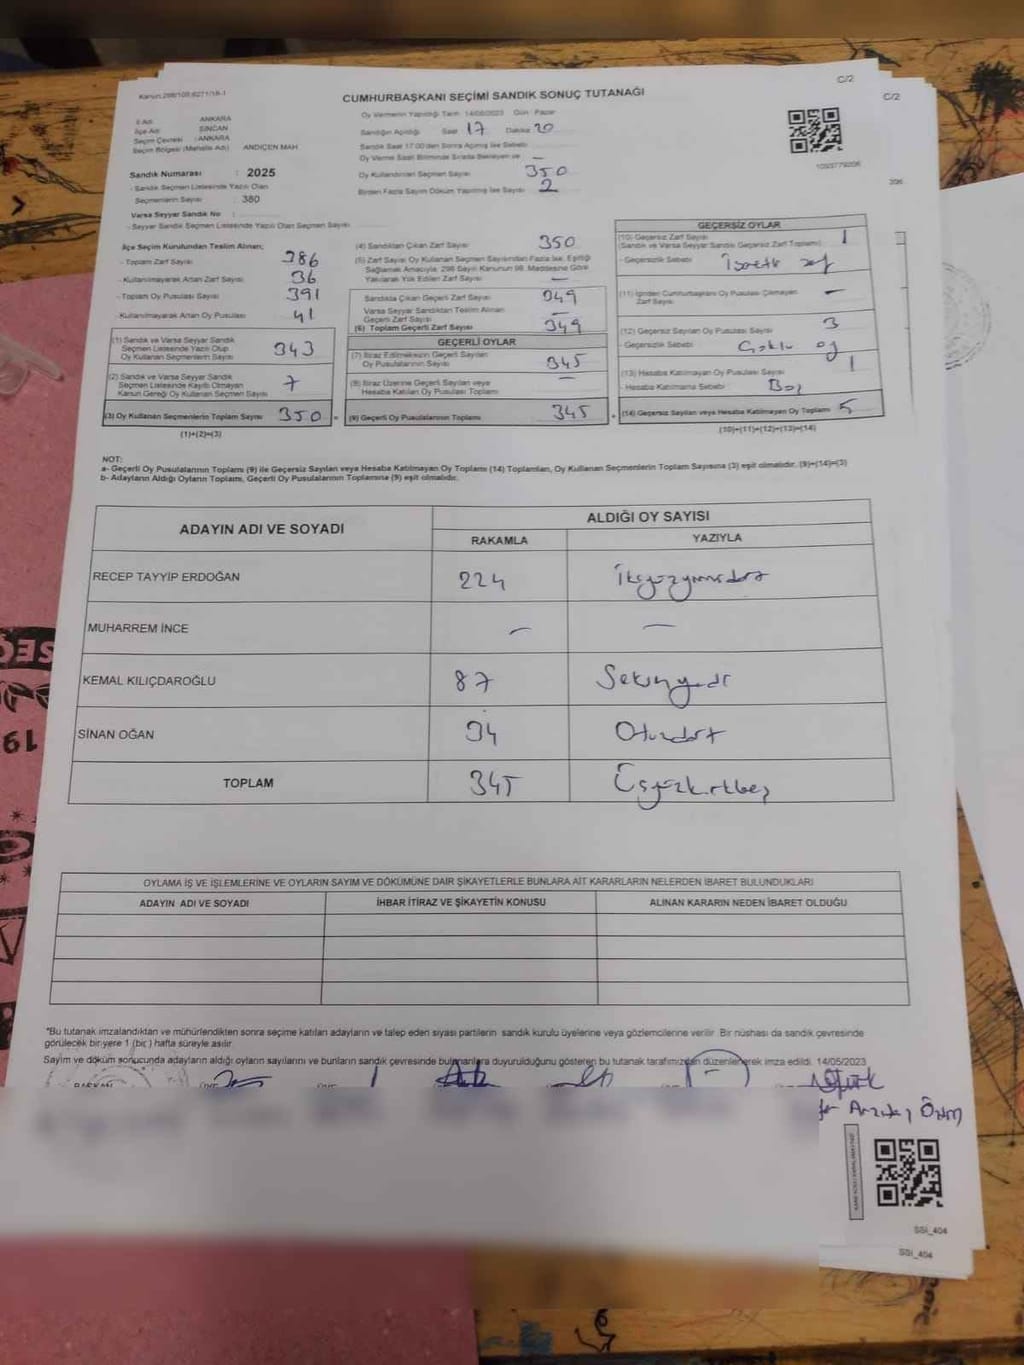 Kanun:298/105,6271/18-1
C/2
C/2
CUMHURBAŞKANI SEÇİMİ SANDIK SONUÇ TUTANAĞI
İl Adı : ANKARA
İlçe Adı : SİNCAN
Seçim Çevresi : ANKARA
Seçim Bölgesi (Mahalle Adı) ANDİÇEN MAH
Sandık Numarası : 2025
- Sandık Seçmen Listesinde Yazılı Olan
Seçmenlerin Sayısı : 380
Varsa Seyyar Sandık No :
- Seyyar Sandık Seçmen Listesinde Yazılı Olan Seçmen Sayısı :
Oy Vermenin Yapıldığı Tarih: 14/05/2023 Gün : Pazar
Sandığın Açıldığı Saat 17 Dakika 20
Sandık Saat 17:00'den Sonra Açılmış İse Sebebi
Oy Verme Saati Bitiminde Sırada Bekleyen ve —
Oy Kullandırılan Seçmen Sayısı 350
Birden Fazla Sayım Döküm Yapılmış İse Sayısı 2
1093779206
206
İlçe Seçim Kurulundan Teslim Alınan;
- Toplam Zarf Sayısı 386
- Kullanılmayarak Artan Zarf Sayısı 36
- Toplam Oy Pusulası Sayısı 391
- Kullanılmayarak Artan Oy Pusulası 41
(1) Sandık ve Varsa Seyyar Sandık
Seçmen Listesinde Yazılı Olup
Oy Kullanan Seçmenlerin Sayısı 343
(2) Sandık ve Varsa Seyyar Sandık
Seçmen Listesinde Kayıtlı Olmayan
Kanun Gereği Oy Kullanan Seçmen Sayısı 7
(3) Oy Kullanan Seçmenlerin Toplam Sayısı 350
(1)+(2)=(3)
(4) Sandıktan Çıkan Zarf Sayısı 350
(5) Zarf Sayısı Oy Kullanan Seçmen Sayısından Fazla İse, Eşitliği
Sağlamak Amacıyla; 298 Sayılı Kanunun 98. Maddesine Göre
Yakılarak Yok Edilen Zarf Sayısı —
Sandıkta Çıkan Geçerli Zarf Sayısı 349
Varsa Seyyar Sandıktan Teslim Alınan
Geçerli Zarf Sayısı —
(6) Toplam Geçerli Zarf Sayısı 349
GEÇERLİ OYLAR
(7) İtiraz Edilmeksizin Geçerli Sayılan
Oy Pusulalarının Sayısı 345
(8) İtiraz Üzerine Geçerli Sayılan veya
Hesaba Katılan Oy Pusulası Toplamı —
(9) Geçerli Oy Pusulalarının Toplamı 345
GEÇERSİZ OYLAR
(10) Geçersiz Zarf Sayısı
(Sandık ve Varsa Seyyar Sandık Geçersiz Zarf Toplamı) 1
- Geçersizlik Sebebi İşaretli zarf
(11) İçinden Cumhurbaşkanı Oy Pusulası Çıkmayan
Zarf Sayısı —
(12) Geçersiz Sayılan Oy Pusulası Sayısı 3
- Geçersizlik Sebebi Çoklu oy
(13) Hesaba Katılmayan Oy Pusulası Sayısı 1
- Hesaba Katılmama Sebebi Boş
(14) Geçersiz Sayılan veya Hesaba Katılmayan Oy Toplamı 5
(10)+(11)+(12)+(13)=(14)
NOT:
a- Geçerli Oy Pusulalarının Toplamı (9) ile Geçersiz Sayılan veya Hesaba Katılmayan Oy Toplamı (14) Toplamları, Oy Kullanan Seçmenlerin Toplam Sayısına (3) eşit olmalıdır. (9)+(14)=(3)
b- Adayların Aldığı Oyların Toplamı, Geçerli Oy Pusulalarının Toplamına (9) eşit olmalıdır.
ADAYIN ADI VE SOYADI
ALDIĞI OY SAYISI
RAKAMLA YAZIYLA
RECEP TAYYİP ERDOĞAN 224 İkiyüzyirmidört
MUHARREM İNCE — —
KEMAL KILIÇDAROĞLU 87 Seksenyedi
SİNAN OĞAN 34 Otuzdört
TOPLAM 345 Üçyüzkırkbeş
OYLAMA İŞ VE İŞLEMLERİNE VE OYLARIN SAYIM VE DÖKÜMÜNE DAİR ŞİKAYETLERLE BUNLARA AİT KARARLARIN NELERDEN İBARET BULUNDUKLARI
ADAYIN ADI VE SOYADI İHBAR İTİRAZ VE ŞİKAYETİN KONUSU ALINAN KARARIN NEDEN İBARET OLDUĞU
*Bu tutanak imzalandıktan ve mühürlendikten sonra seçime katılan adayların ve talep eden siyasi partilerin sandık kurulu üyelerine veya gözlemcilerine verilir. Bir nüshası da sandık çevresinde
görülecek bir yere 1 (bir) hafta süreyle asılır.
Sayım ve döküm sonucunda adayların aldığı oyların sayılarını ve bunların sandık çevresinde bulunanlara duyurulduğunu gösteren bu tutanak tarafımızdan düzenlenerek imza edildi. 14/05/2023
BAŞKAN
SSİ_404
SSİ_404